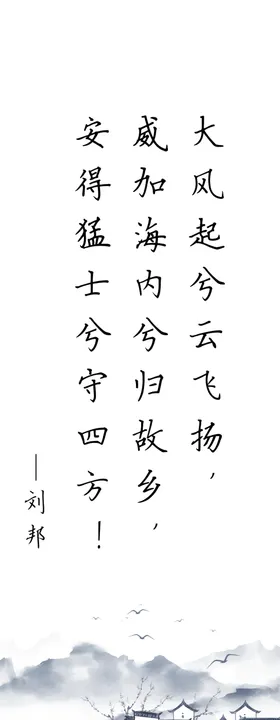 大风起兮云飞扬，
威加海内兮归故乡，
安得猛士兮守四方！
—刘邦